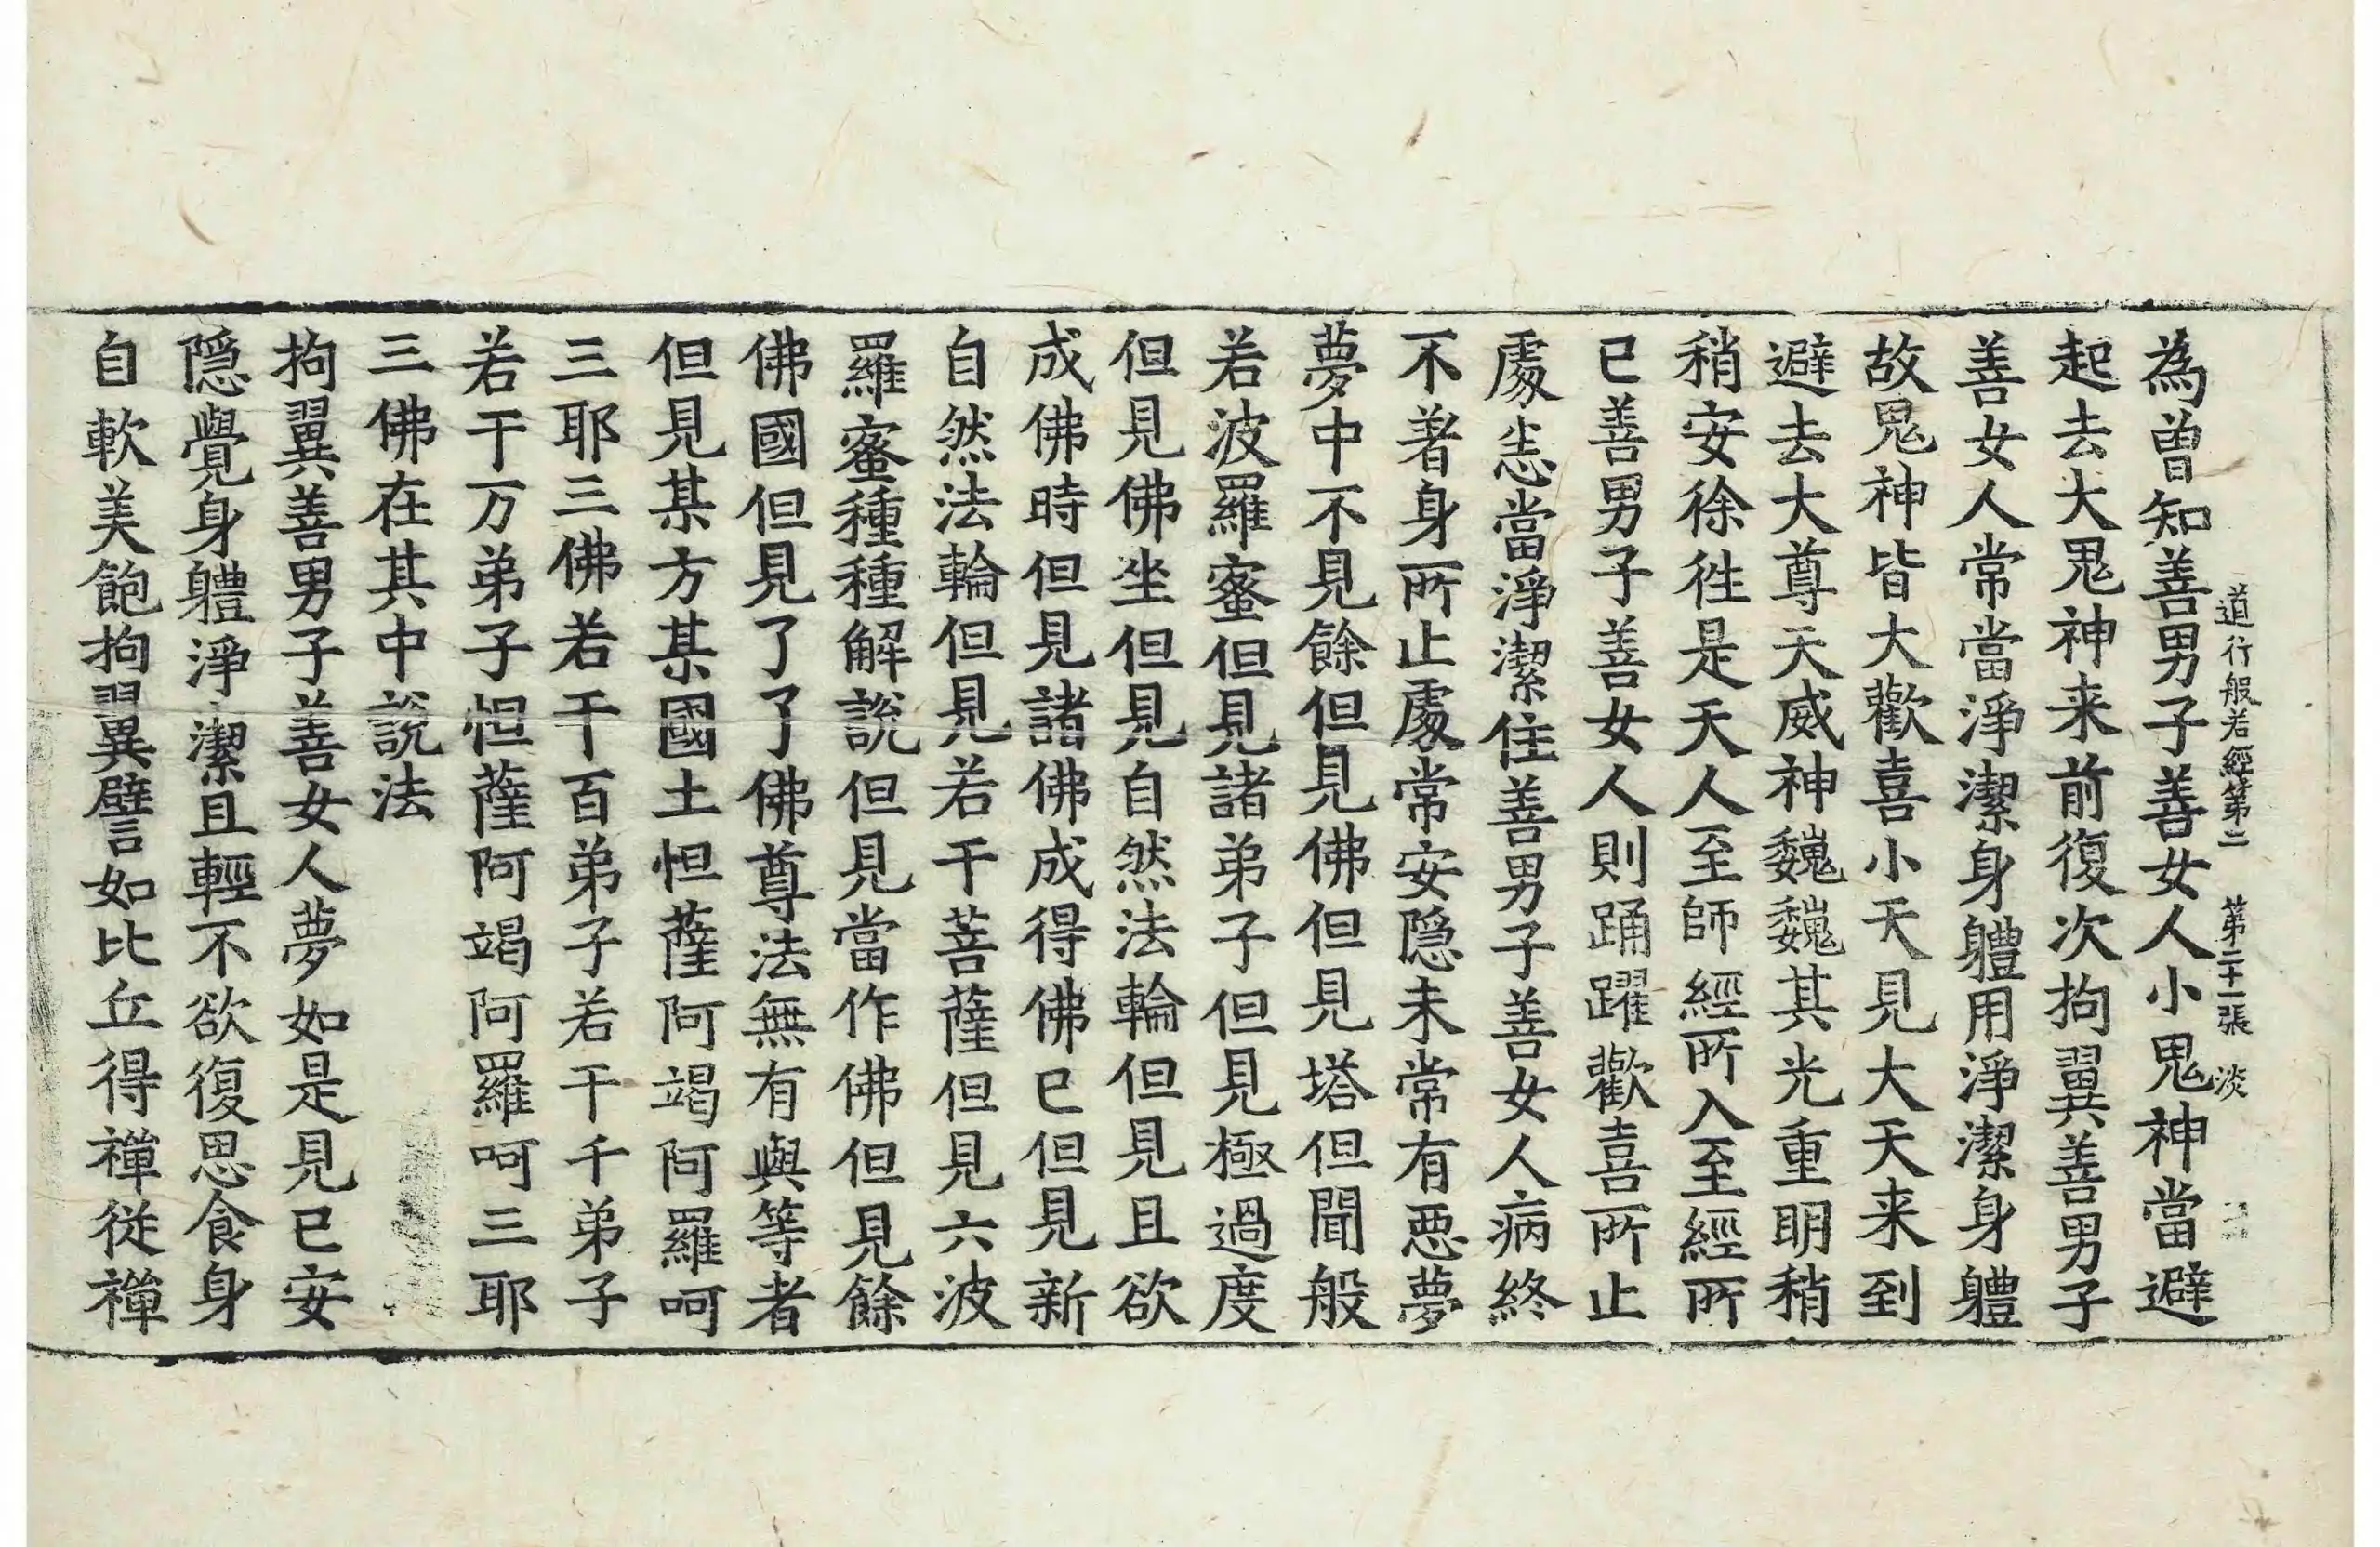 道行般若經第二　第二十一張　淡
為曾知善男子善女人小鬼神當避
起去大鬼神来前復次拘翼善男子
善女人常當淨潔身體用淨潔身體
故鬼神皆大歡喜小天見大天来到
避去大尊天威神巍巍其光重明稍
稍安徐徃是天人至師經所入至經所
已善男子善女人則踊躍歡喜所止
處㤅當淨潔住善男子善女人病終
不著身所止處常安隱未常有惡夢
夢中不見餘但見佛但見塔但聞般
若波羅蜜但見諸弟子但見極過度
但見佛坐但見自然法輪但見且欲
成佛時但見諸佛成得佛已但見新
自然法輪但見若干菩薩但見六波
羅蜜種種解說但見當作佛但見餘
佛國但見了了佛尊法無有與等者
但見某方某國土怛薩阿竭阿羅呵
三耶三佛若干百弟子若干千弟子
若干万弟子怛薩阿竭阿羅呵三耶
三佛在其中說法
拘翼善男子善女人夢如是見已安
隱覺身體淨潔且輕不欲復思食身
自軟美飽拘翼譬如比丘得禪從禪